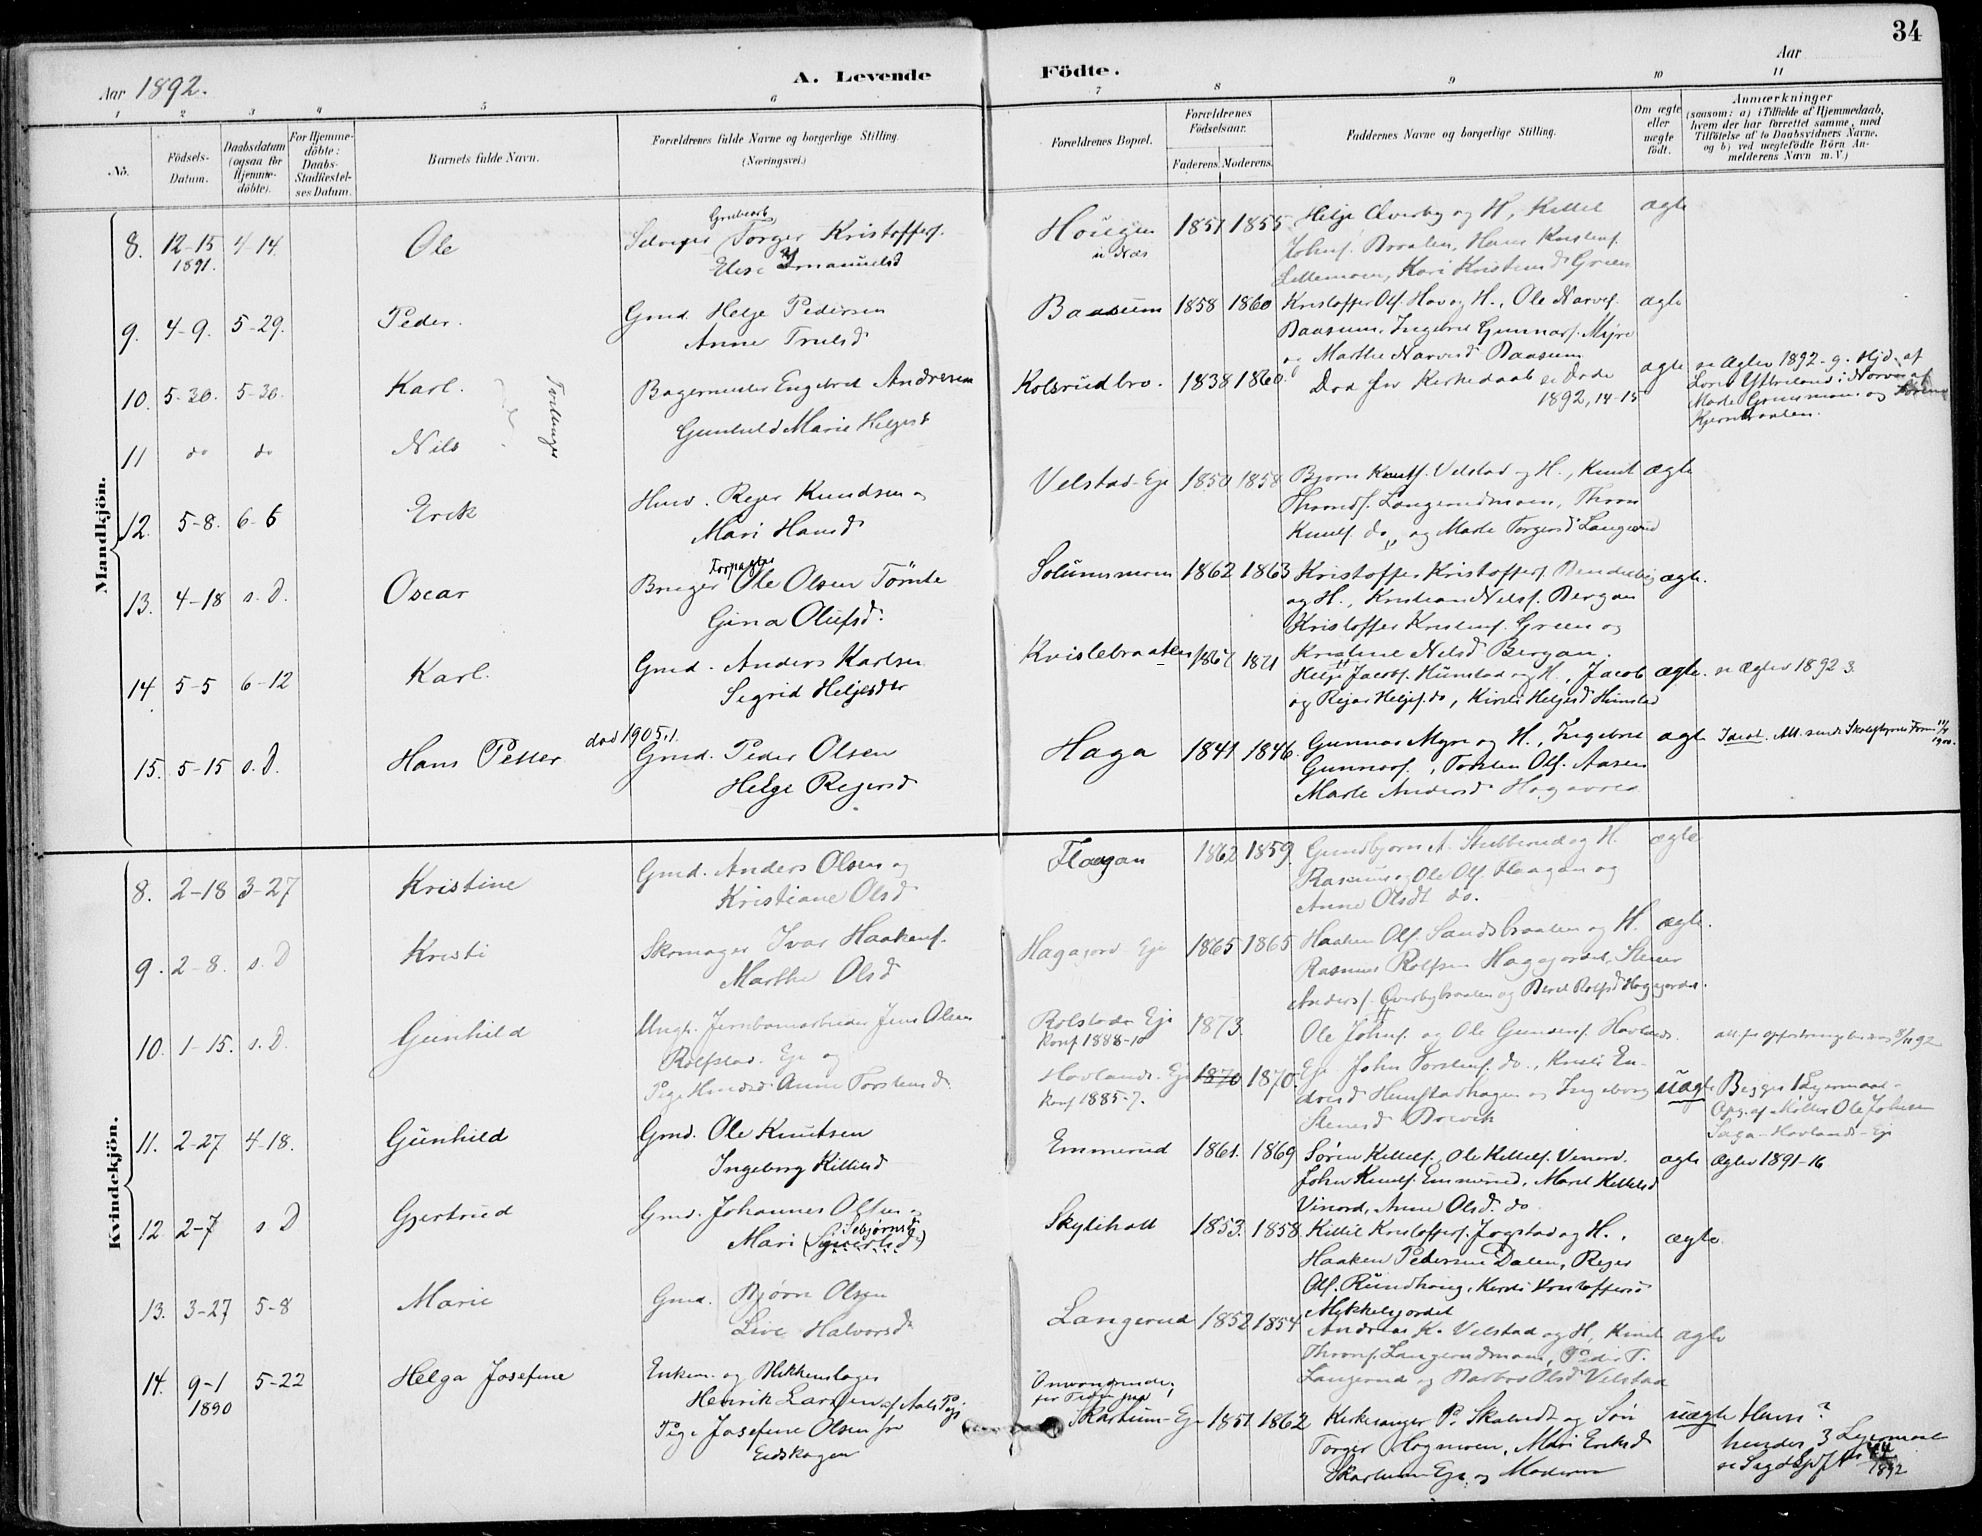 34
Aar 1892.
A. Levende Födte.
Aar
1 2 3 4 5 6 7 8 9 10 11
No.
Födsels-Datum.
Daabsdatum (ogsaa for Hjemme-döbte).
For Hjemme-döbte: Daabs-Stadfæstel-ses Datum.
Barnets fulde Navn.
Forældrenes fulde Navne og borgerlige Stilling.
(Næringsvei.)
Forældrenes Bopæl.
Forældrenes Födselsaar.
Faderens. Moderens.
Faddernes Navne og borgerlige Stilling.
Om ægte eller uægte født.
Anmærkninger
(saasom: a) i Tilfælde af Hjemmedaab,
hvem der har forrettet samme, med
Tilföielse af to Daabsvidners Navne,
og b) ved uægtefödte Börn An-
melderens Navn m. V.)
Mandkjön.
8. 12-15 1891. 4-14. Ole
Grubearb.
Torger Kristoffers.
Elise Imanuelsd
Hougen
i Næs
1851 1855
Helge Overby og H, Kittil
Johns. Braaten, Hans Kristens.
Lillemoen, Kari Kristensd Green
ægte
9. 4-9. 5-29. Peder.
Gmd. Helge Pedersen
Anne Trulsd
Baasum 1858 1860
Kristoffer Ols. Hov og H., Ole Narves.
Baasum, Ingebret Gunnars. Myre
og Marthe Narvesd Baasum
ægte
10. 5-30. 5-30. Karl.
Tvillinger
Bagermester Engebret Andresen
Gunhild Marie Helgesd
Kolsrudbro. 1838 1860.
Død før Kirkedaab se Døde
1892, 14-15
ægte
se Ægtev 1892-9. Hjd. af
11 do do Nils
12. 5-8. 6-6 Erik
Husm. Reier Knudsen og
Mari Hansd
Velstad-Eje 1850 1858
Bjørn Knuts. Velstad og H., Knut
Thronds. Langerudmoen, Thron
Knuts. do, og Marte Torgersd Langerud
ægte
13. 4-18 s. D. Oscar
Forpagter
Bruger Ole Olsen Tömte
Gina Olufsd.
Solumsmoen 1862 1863
Kristoffer Kristoffers.
og H., Kristian Nilss. Bergan
Kristoffer Kristens. Green og
Kristine Nilsd Bergan.
ægte.
14. 5-5 6-12 Karl.
Gmd. Anders Karlsen
Sigrid Helgesdtr
Kvislebraaten 1867 1871
Helge Jacobs. Hunstad og H., Jacob
og Reiar Helges. do, Kirsti Helgesd Hunstad
ægte.
se Ægtev 1892 3.
15. 5-15 s. D. Hans Petter
død 1905.1.
Gmd. Peder Olsen
Helge Reiersd
Haga 1841 1846.
Gunnar Myre og H., Ingebret
Gunnars., Torsten Ols. Aasen
Marte Andersd
ægte
Kvindekjön.
8. 2-18 3-27 Kristine
Gmd. Anders Olsen og
Kristiane Olsd
Flaagan 1862 1859
Gundbjørn A. Stubberud og H.
Rasmus og Ole Ols. Flaagan og
Anne Olsdt do.
ægte
9. 2-8. s. D Kristi
Skomager Ivar Haakens.
Marthe Olsd
Hagajord Eje 1865 1865
Haaken Ols. Sandsbraaten og H.
Rasmus Rolfsen Hagajordet, Stener
Anders. Overbybraaten og Berit Rolfsd Hagajordet.
ægte.
10. 1-15. s. D. Gunhild
Ungk. Jernbanearbeider Jens Olsen
Rolfstad Eje og
Pige Anne Torstensd.
Rolstad Eje
Konf 1888-10
1873.
Hovlands. Eje 1870 1870.
Konf 1885-7.
Ole Johns. og Ole Gunders. Hovlands.
Eje John Torstens. do., Kristi En-
dresd Hunstadhagen og Ingeborg
Stenesd Brevik
uægte
Begges 1 Lejermaal.
Opg. af Møller Ole Johnsen
Saga-Hovlands-Eje
11. 2-27 4-18. Gunhild
Gmd. Ole Knutsen
Ingeborg Kittilsd
Emmerud 1861. 1869
Søren Kittels., Ole Kittels. Vinord.
John Knuts. Emmerud, Marit Kittilsd
Vinord, Anne Olsd. do
ægte
Ægtev 1891-16
12 2-7 s. D Gjertrud
Gmd. Johannes Olsen og
Mari
Skytihall 1853. 1858.
Kittil Kristoffers. Jogstad og H.,
Haaken Pedersen Dalen, Reier
Ols. Rundhaug, Kirsti Kristoffersd
Mykkelgjordet
ægte.
13. 3-27 5-8 Marie
Gmd. Bjørn Olsen
Live Halvorsd.
Langerud 1852 1854
Andreas K. Velstad og H, Knut
Throns. Langerudmoen, Peder T.
Langerud og Barbro Olsd Velstad
ægte
14. 9-1 1890 5-22 Helga Josefine
Enkem. og Blikkenslager
Henrik Larsen af Aals Pgj
Pige Josefine Olsen fra
Eidskogen
Omvandrende,
for Tiden paa
Skartum-Eje 1851 1862
Kirkesanger P. Skalstdt og Søn
Torger Hogmoen, Mari Eriksd
Skartum-Eje og Moderen
uægte
Hans ?
hendes 3 Lejermaal
1892